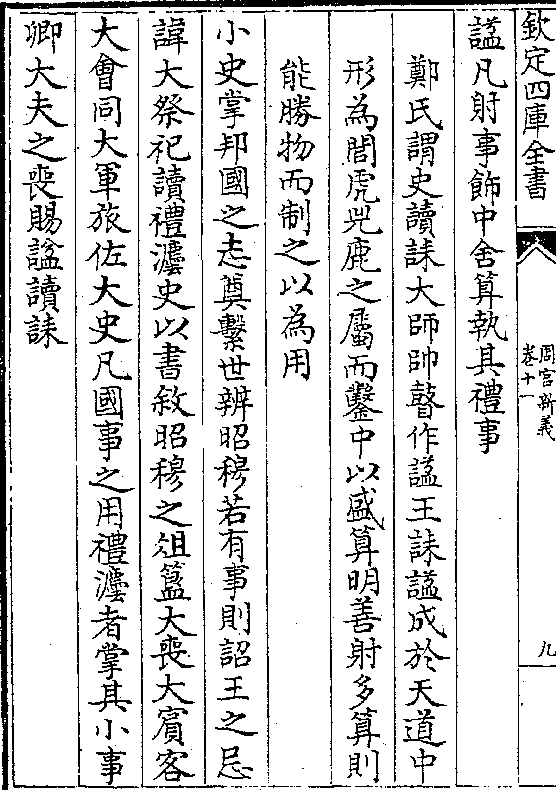 欽定四庫全書
周官新義
卷十一
九
諡凡射事飾中舍算執其禮事
鄭氏謂史讀誄大師帥瞽作諡王誄諡成於天道中
形為閭虎兕鹿之屬而鑿中以盛算明善射多算則
能勝物而制之以為用
小史掌邦國之志奠繫世辨昭穆若有事則詔王之忌
諱大祭祀讀禮灋史以書敘昭穆之俎簋大喪大賓客
大會同大軍旅佐大史凡國事之用禮灋者掌其小事
卿大夫之喪賜諡讀誄